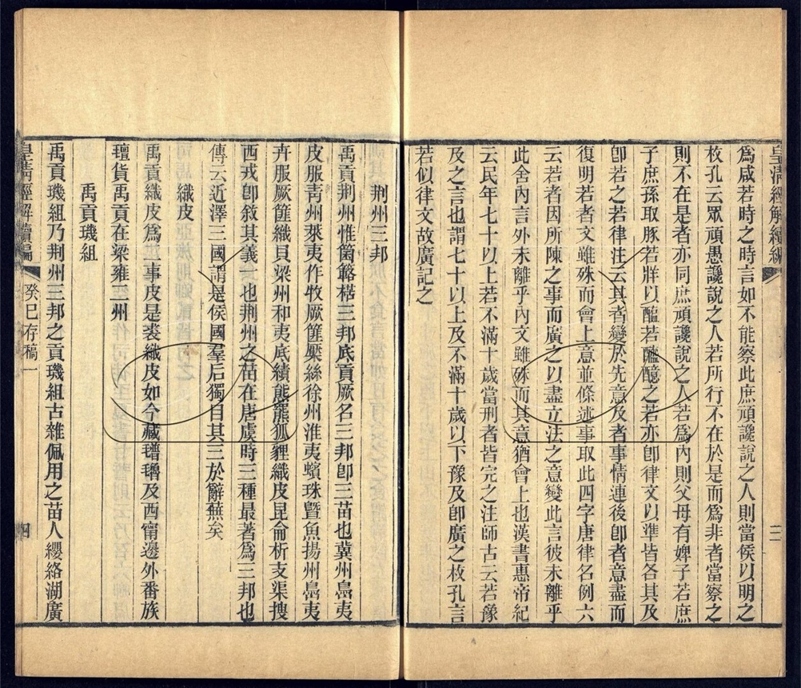 皇清經解續編
三
爲咸若時之時言如不能察此庶頑讒說之人則當侯以明之
枚孔云眾頑愚讒說之人若所行不在於是而爲非者當察之
則不在是者亦同庶頑讒說之人若爲內則父母有婢子若庶
子庶孫取豚若牂以醢若醯醷之若亦卽律文以準皆各其及
卽若之若律注云其者變於先意及者事情連後卽者意盡而
復明若者文雖殊而會上意並條述事取此四字唐律名例六
云若者因所陳之事而廣之以盡立法之意變此言彼未離乎
此舍內言外未離乎內文雖殊而其意猶會上也漢書惠帝紀
云民年七十以上若不滿十歲當刑者皆完之注師古云若豫
及之言也謂七十以上及不滿十歲以下豫及卽廣之枚孔言
若似律文故廣記之
荆州三邦
禹貢荆州惟箘簵楛三邦底貢厥名三邦卽三苗也冀州島夷
皮服靑州萊夷作牧厥篚檿絲徐州淮夷蠙珠曁魚揚州島夷
卉服厥篚織貝梁州和夷底績熊羆狐貍織皮昆侖析支渠搜
西戎卽敘其義一也荆州之苗在唐虞時三種最著爲三邦也
傳云近澤三國謂是侯國羣后獨目其三於辭蕪矣
織皮
禹貢織皮爲二事皮是裘織皮如今藏氆氌及西甯邊外番族
氊貨禹貢在梁雍二州
禹貢璣組
禹貢璣組乃荆州三邦之貢璣組古雜佩用之苗人纓絡湖廣
皇淸經解續編
癸巳存稿一
四